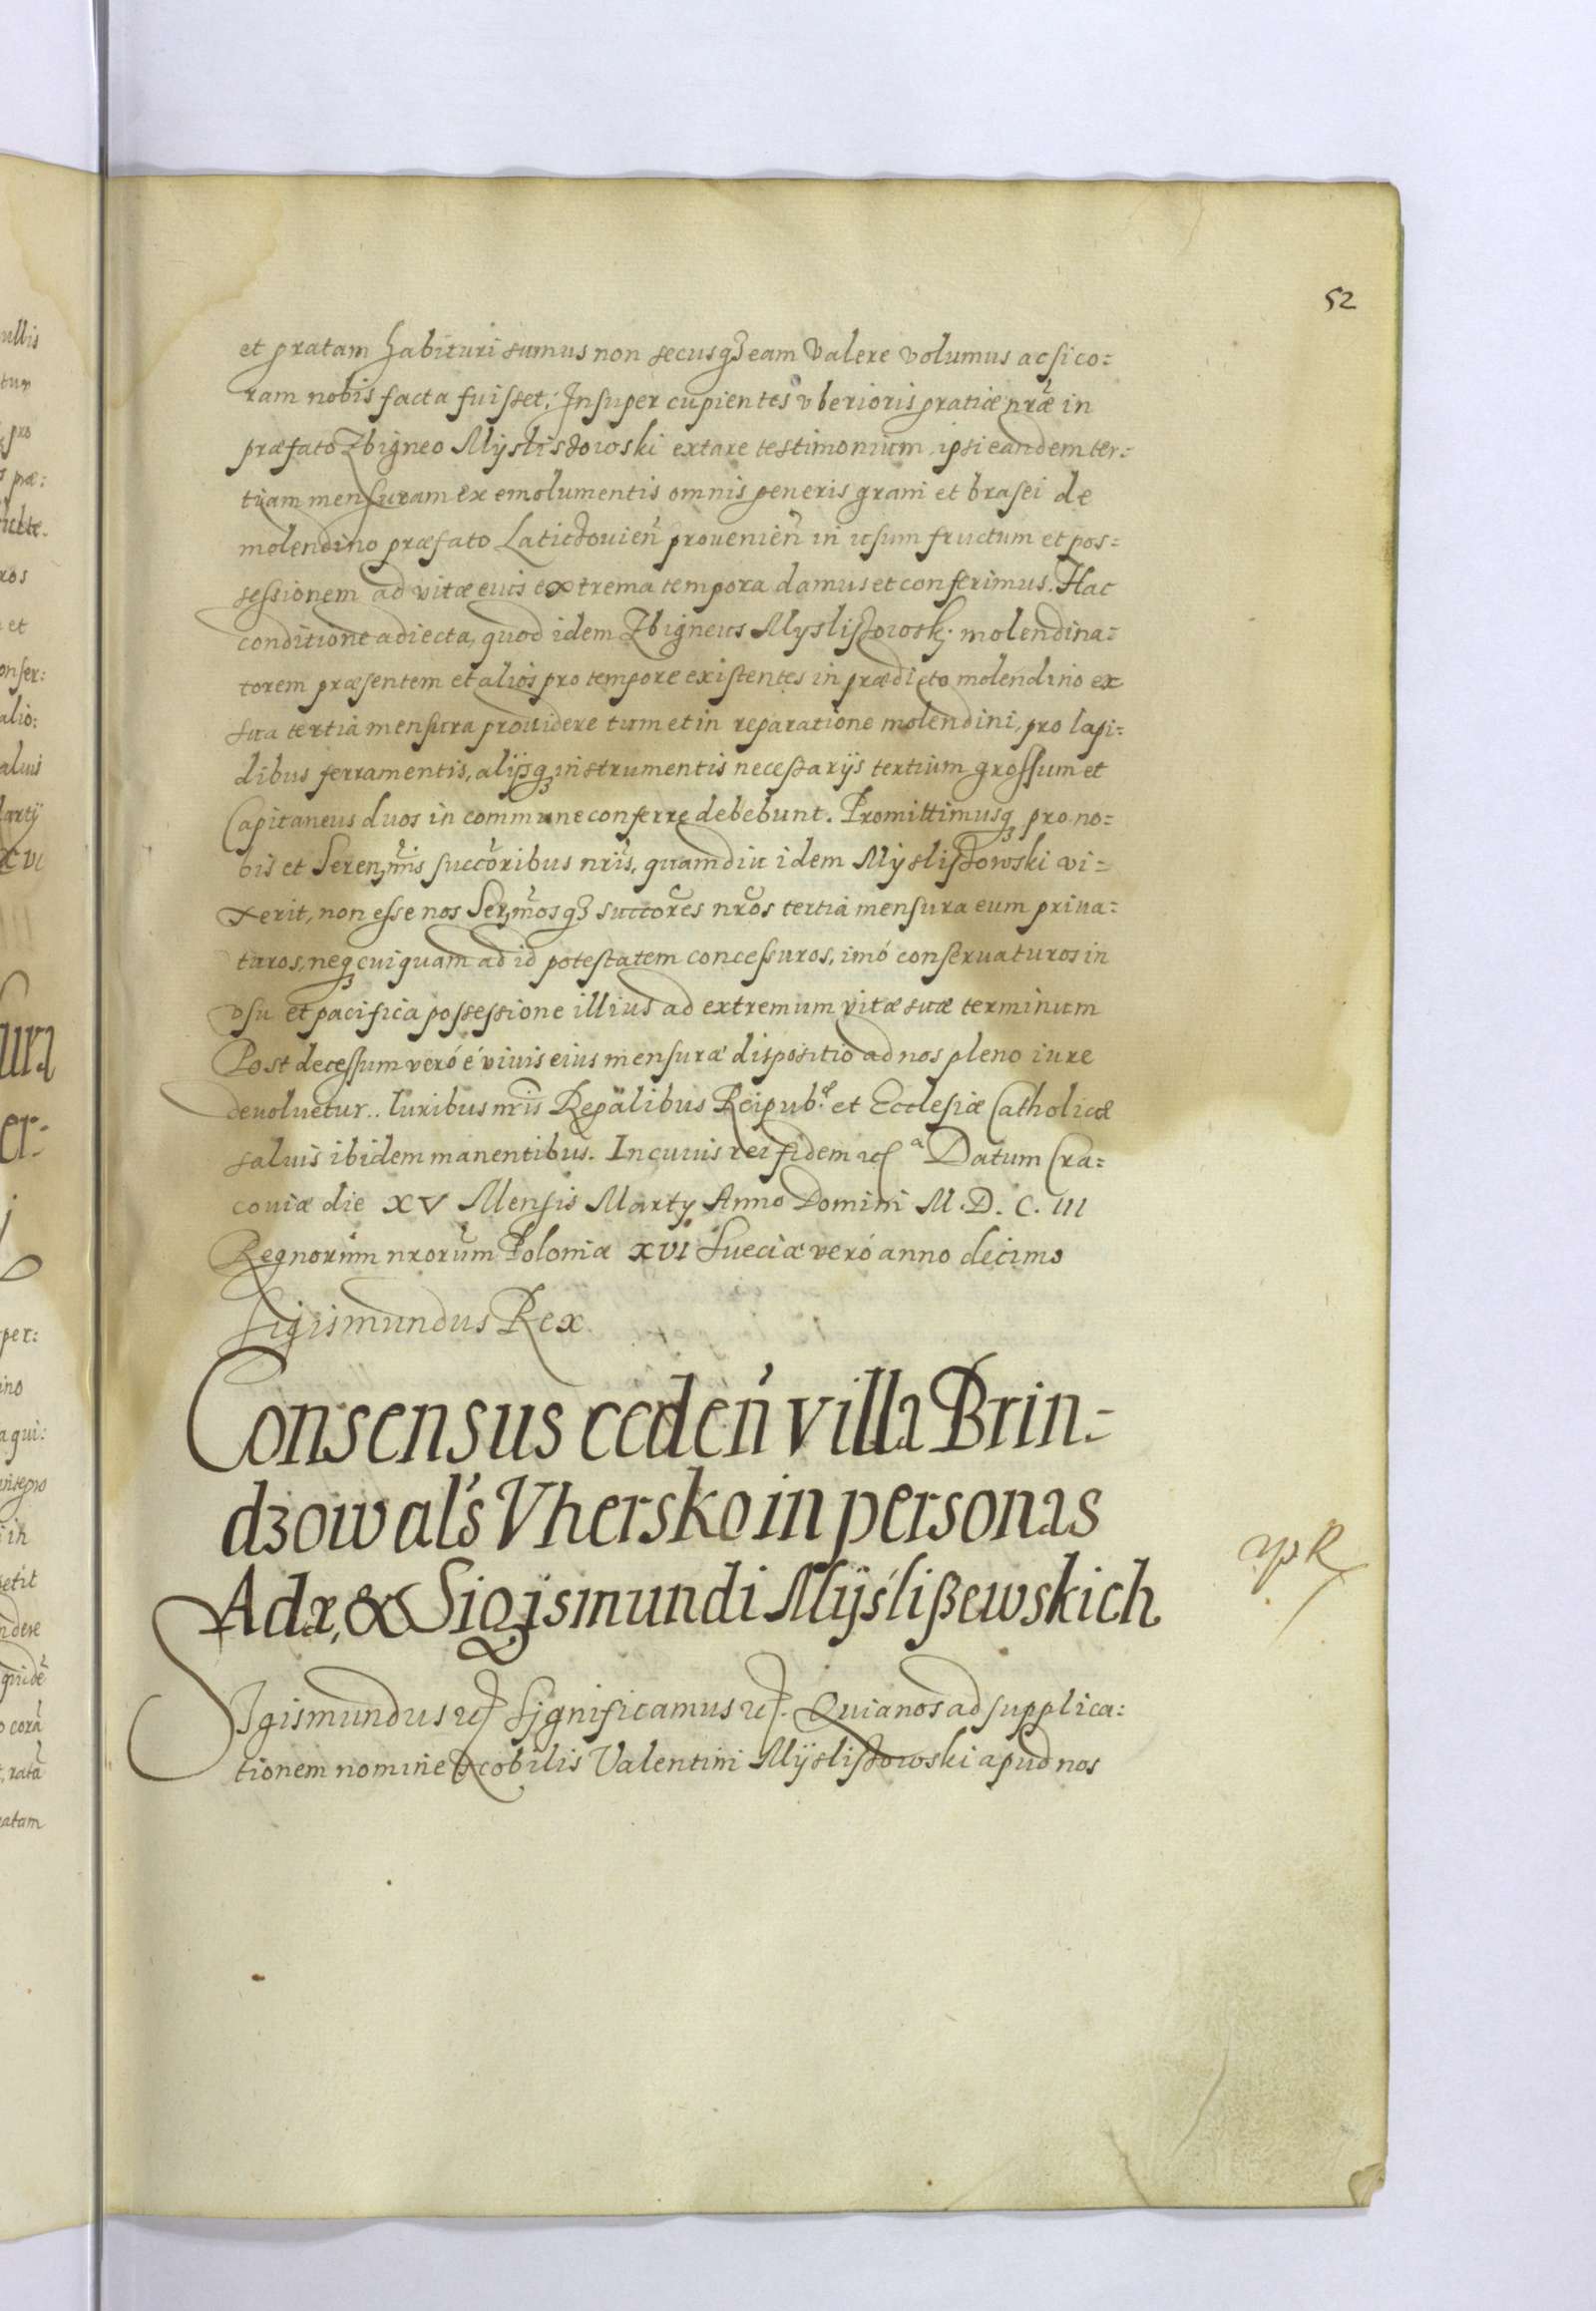 52
et gratam habituri sumus non secusq3 eam valere volumus ac si co:
ram nobis facta fuisset; Insuper cupientes vberioris gratiæ nræ in
præfato Zbigneo Myslissowski extare testimonium, ipsi eandem ter:
tiam mensuram ex emolumentis omnis generis grani et brasei de
molendino præfato prouenień in usum fructum et pos=
sessionem ad vitæ eius extrema tempora damus et conferimus. Hac
conditione adiecta, quod idem Zbigneus Myslißowski molendina=
torem præsentem et alios pro tempore existentes in prædicto molendino ex
sua tertia mensura prouidere tum et in reparatione molendini, pro lapi=
dibus ferramentis, alijsq3 instrumentis necessarijs tertium grossum et
Capitaneus duos in commune conferre debebunt. Promittimusq3 pro no=
bis et Serenmis succoribus nris, quamdiu idem Myslißowski vi=
xerit, non esse nos Sermosq3 succores nros tertia mensura eum priua=
turos, neq3 cuiquam ad id potestatem concessuros, imó conseruaturos in
vsu et pacifica possessione illius ad extremum vitæ suæ terminum
Post decessum veró é viuis eius mensuræ dispositio ad nos pleno iure
deuoluetur.. Iuribus nris Regalibus Reipub. et Ecclesiæ Catholicæ
saluis ibidem manentibus. In cuius rei fidem etc a Datum Cra=
couiæ die XV Mensis Marty Anno Domini M.D.C.III
Regnorum nrorum Poloniæ XVI Sueciæ veró anno decimo
Sigismundus Rex.
Consensus cedeń villa Brin=
dzow als Vhersko in personas
Adæ, & Sigismundi Myślißewskich
Sigismundus etc Significamus etc. Quia nos ad supplica:
tionem nomine Nobilis Valentini Myslißowski apud nos